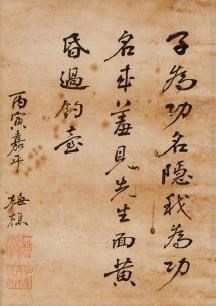 子為功名隱我為功
名來羞見先生面黃
昏過釣臺
丙寅嘉平
梅樵